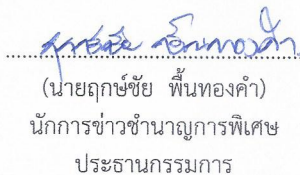 (นายฤกษ์ชัย พื้นทองคำ)
นักการข่าวชำนาญการพิเศษ
ประธานกรรมการ